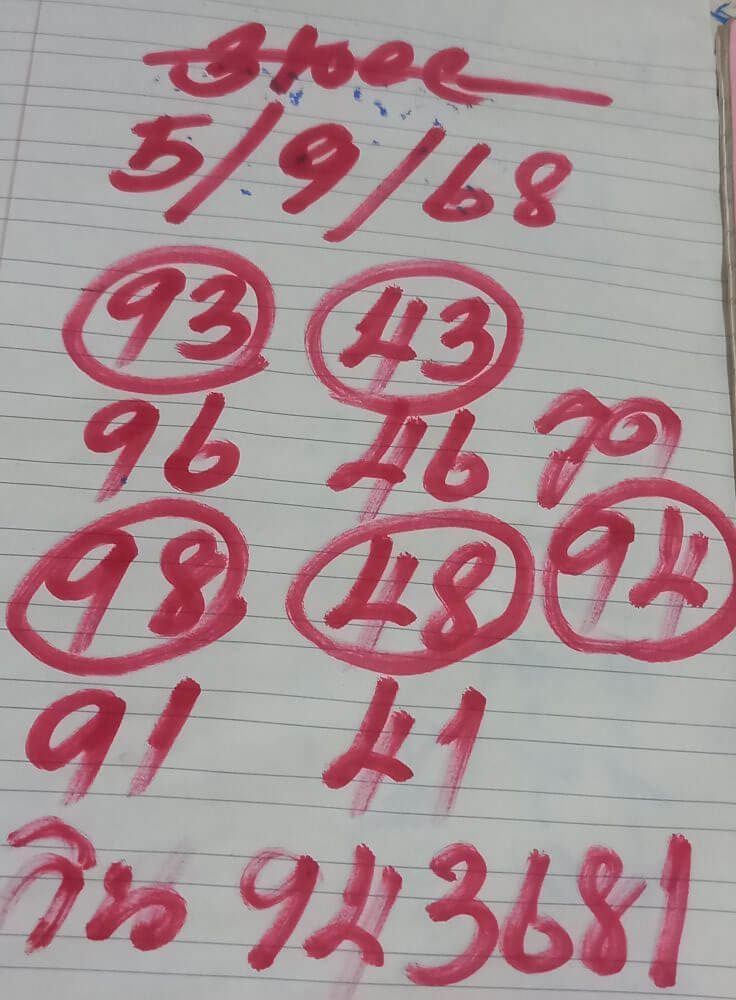 5/9/68
93 43
96 46
98 48 94
91 41
วิน 943681